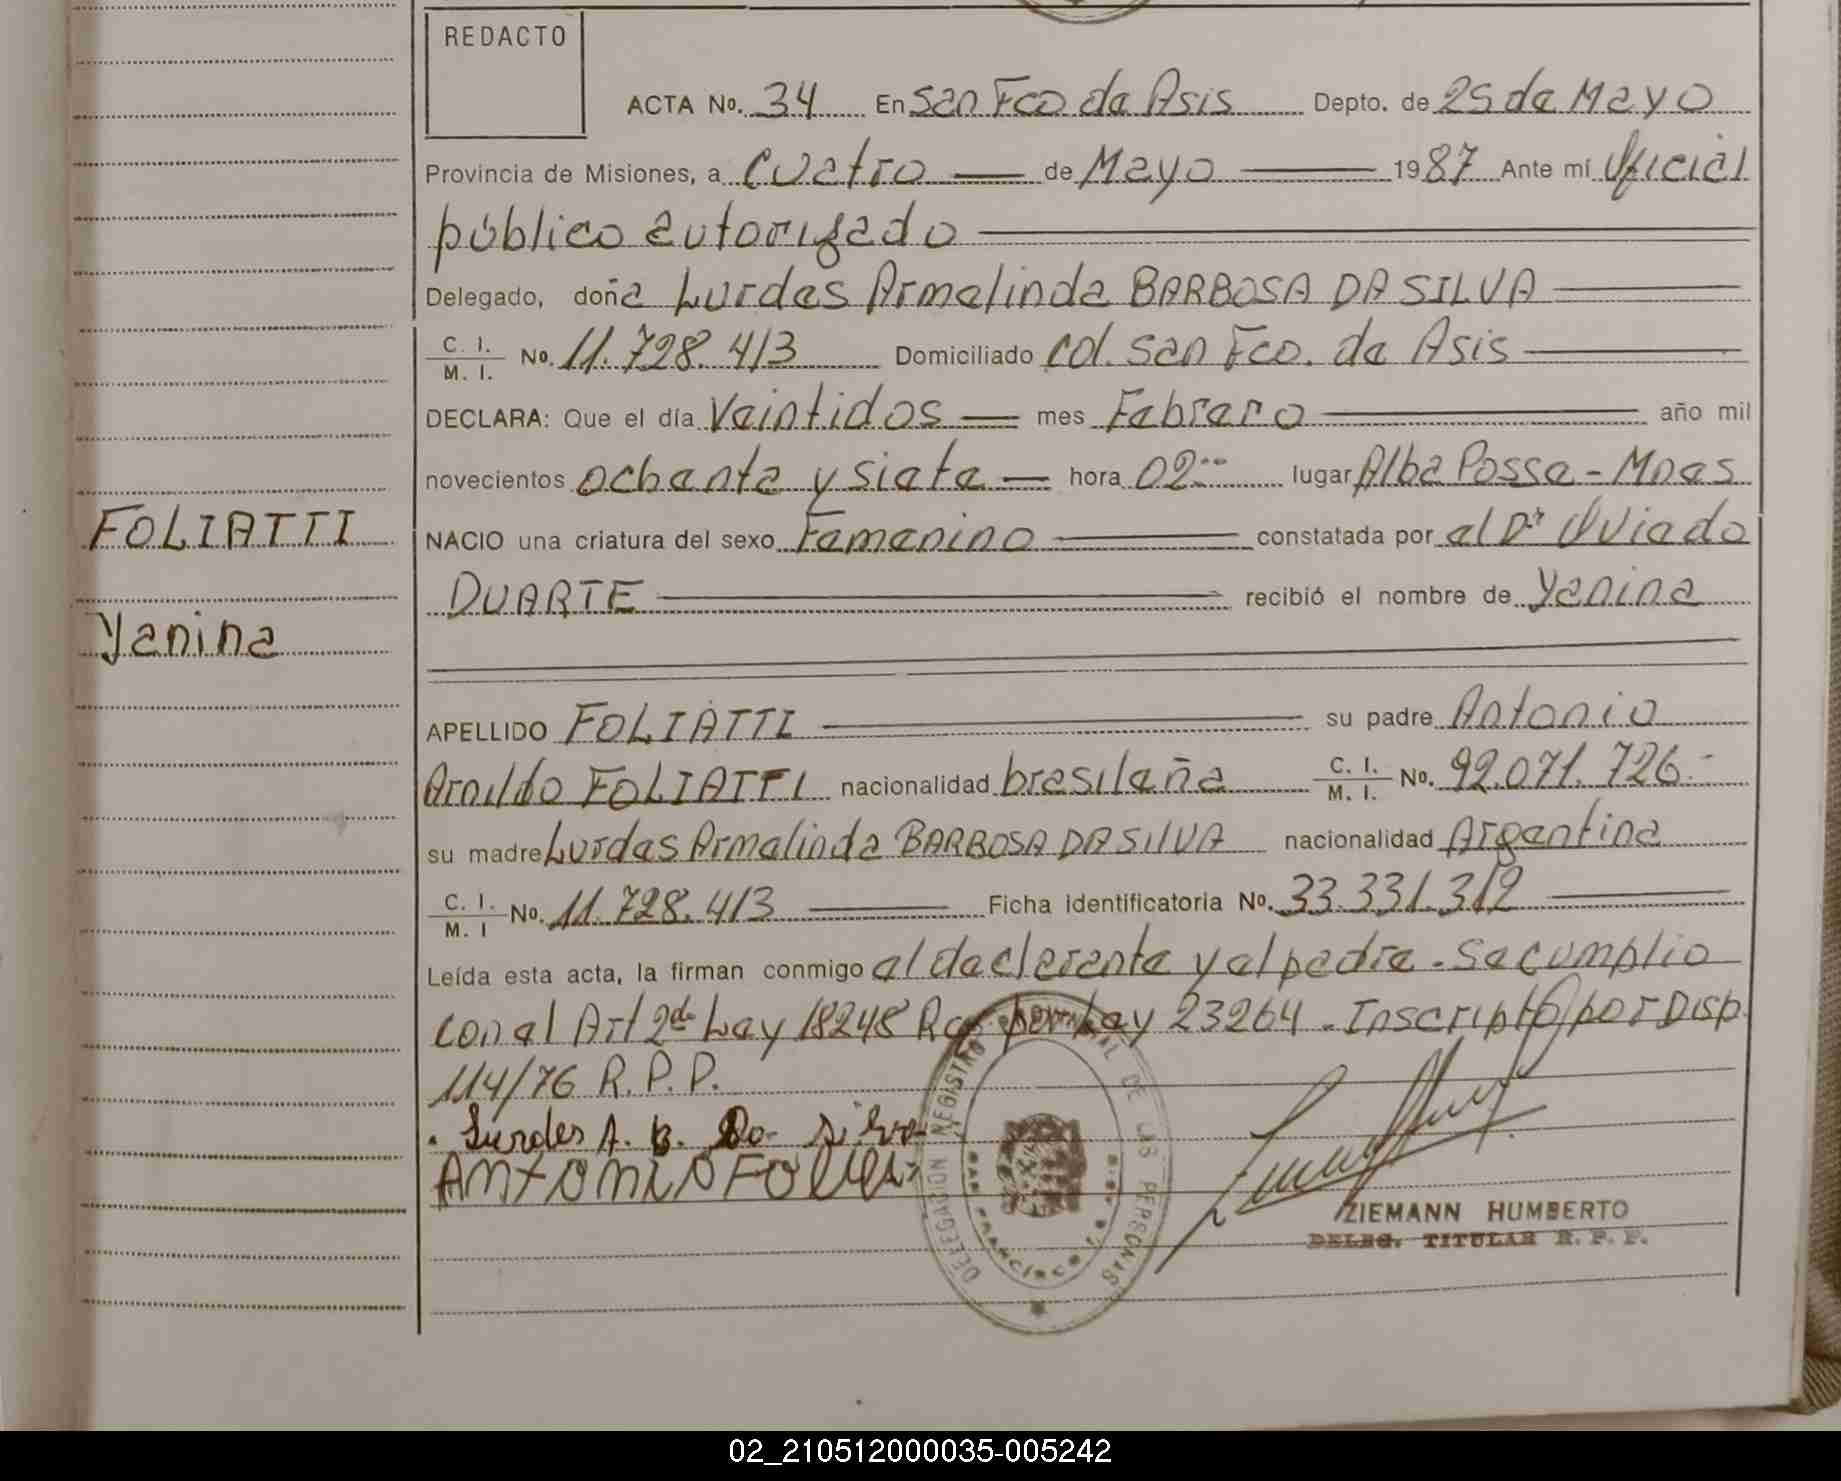 REDACTO
ACTA No. 34 En San Fco de Asis Depto. de 25 de Mayo
Provincia de Misiones, a Cuatro de Mayo 1987 Ante mí Oficial
público autorizado
Delegado, doña Lurdes Armelinda BARBOSA DA SILVA
C. I.
M. I. No. 11.728.413 Domiciliado Col. San Fco. de Asis
DECLARA: Que el día Veintidos mes Febrero año mil
novecientos ochenta y siete hora 02 lugar Alba Posse - Mnes
FOLIATTI
NACIO una criatura del sexo Femenino constatada por el Dr Oviedo
DUARTE recibió el nombre de Yanina
Yanina
APELLIDO FOLIATTI su padre Antonio
Arnildo FOLIATTI nacionalidad brasileña C. I.
M. I. No. 92.071.726.-
su madre Lurdes Armelinda BARBOSA DA SILVA nacionalidad Argentina
C. I.
M. I No. 11.728.413 Ficha identificatoria No. 33.331.312
Leída esta acta, la firman conmigo el declarente y el padre. Se cumplio
con el Art 2do Ley 18248 por Ley 23264. Inscripto por Disp.
114/76 R.P.P.
Lurdes A. B. Da Silva
ANTONIO
DELEGACION REGISTRO PROVINCIAL DE LAS PERSONAS
SAN FRANCISCO
ZIEMANN HUMBERTO
DELEG. TITULAR R. P. P.
02_210512000035-005242